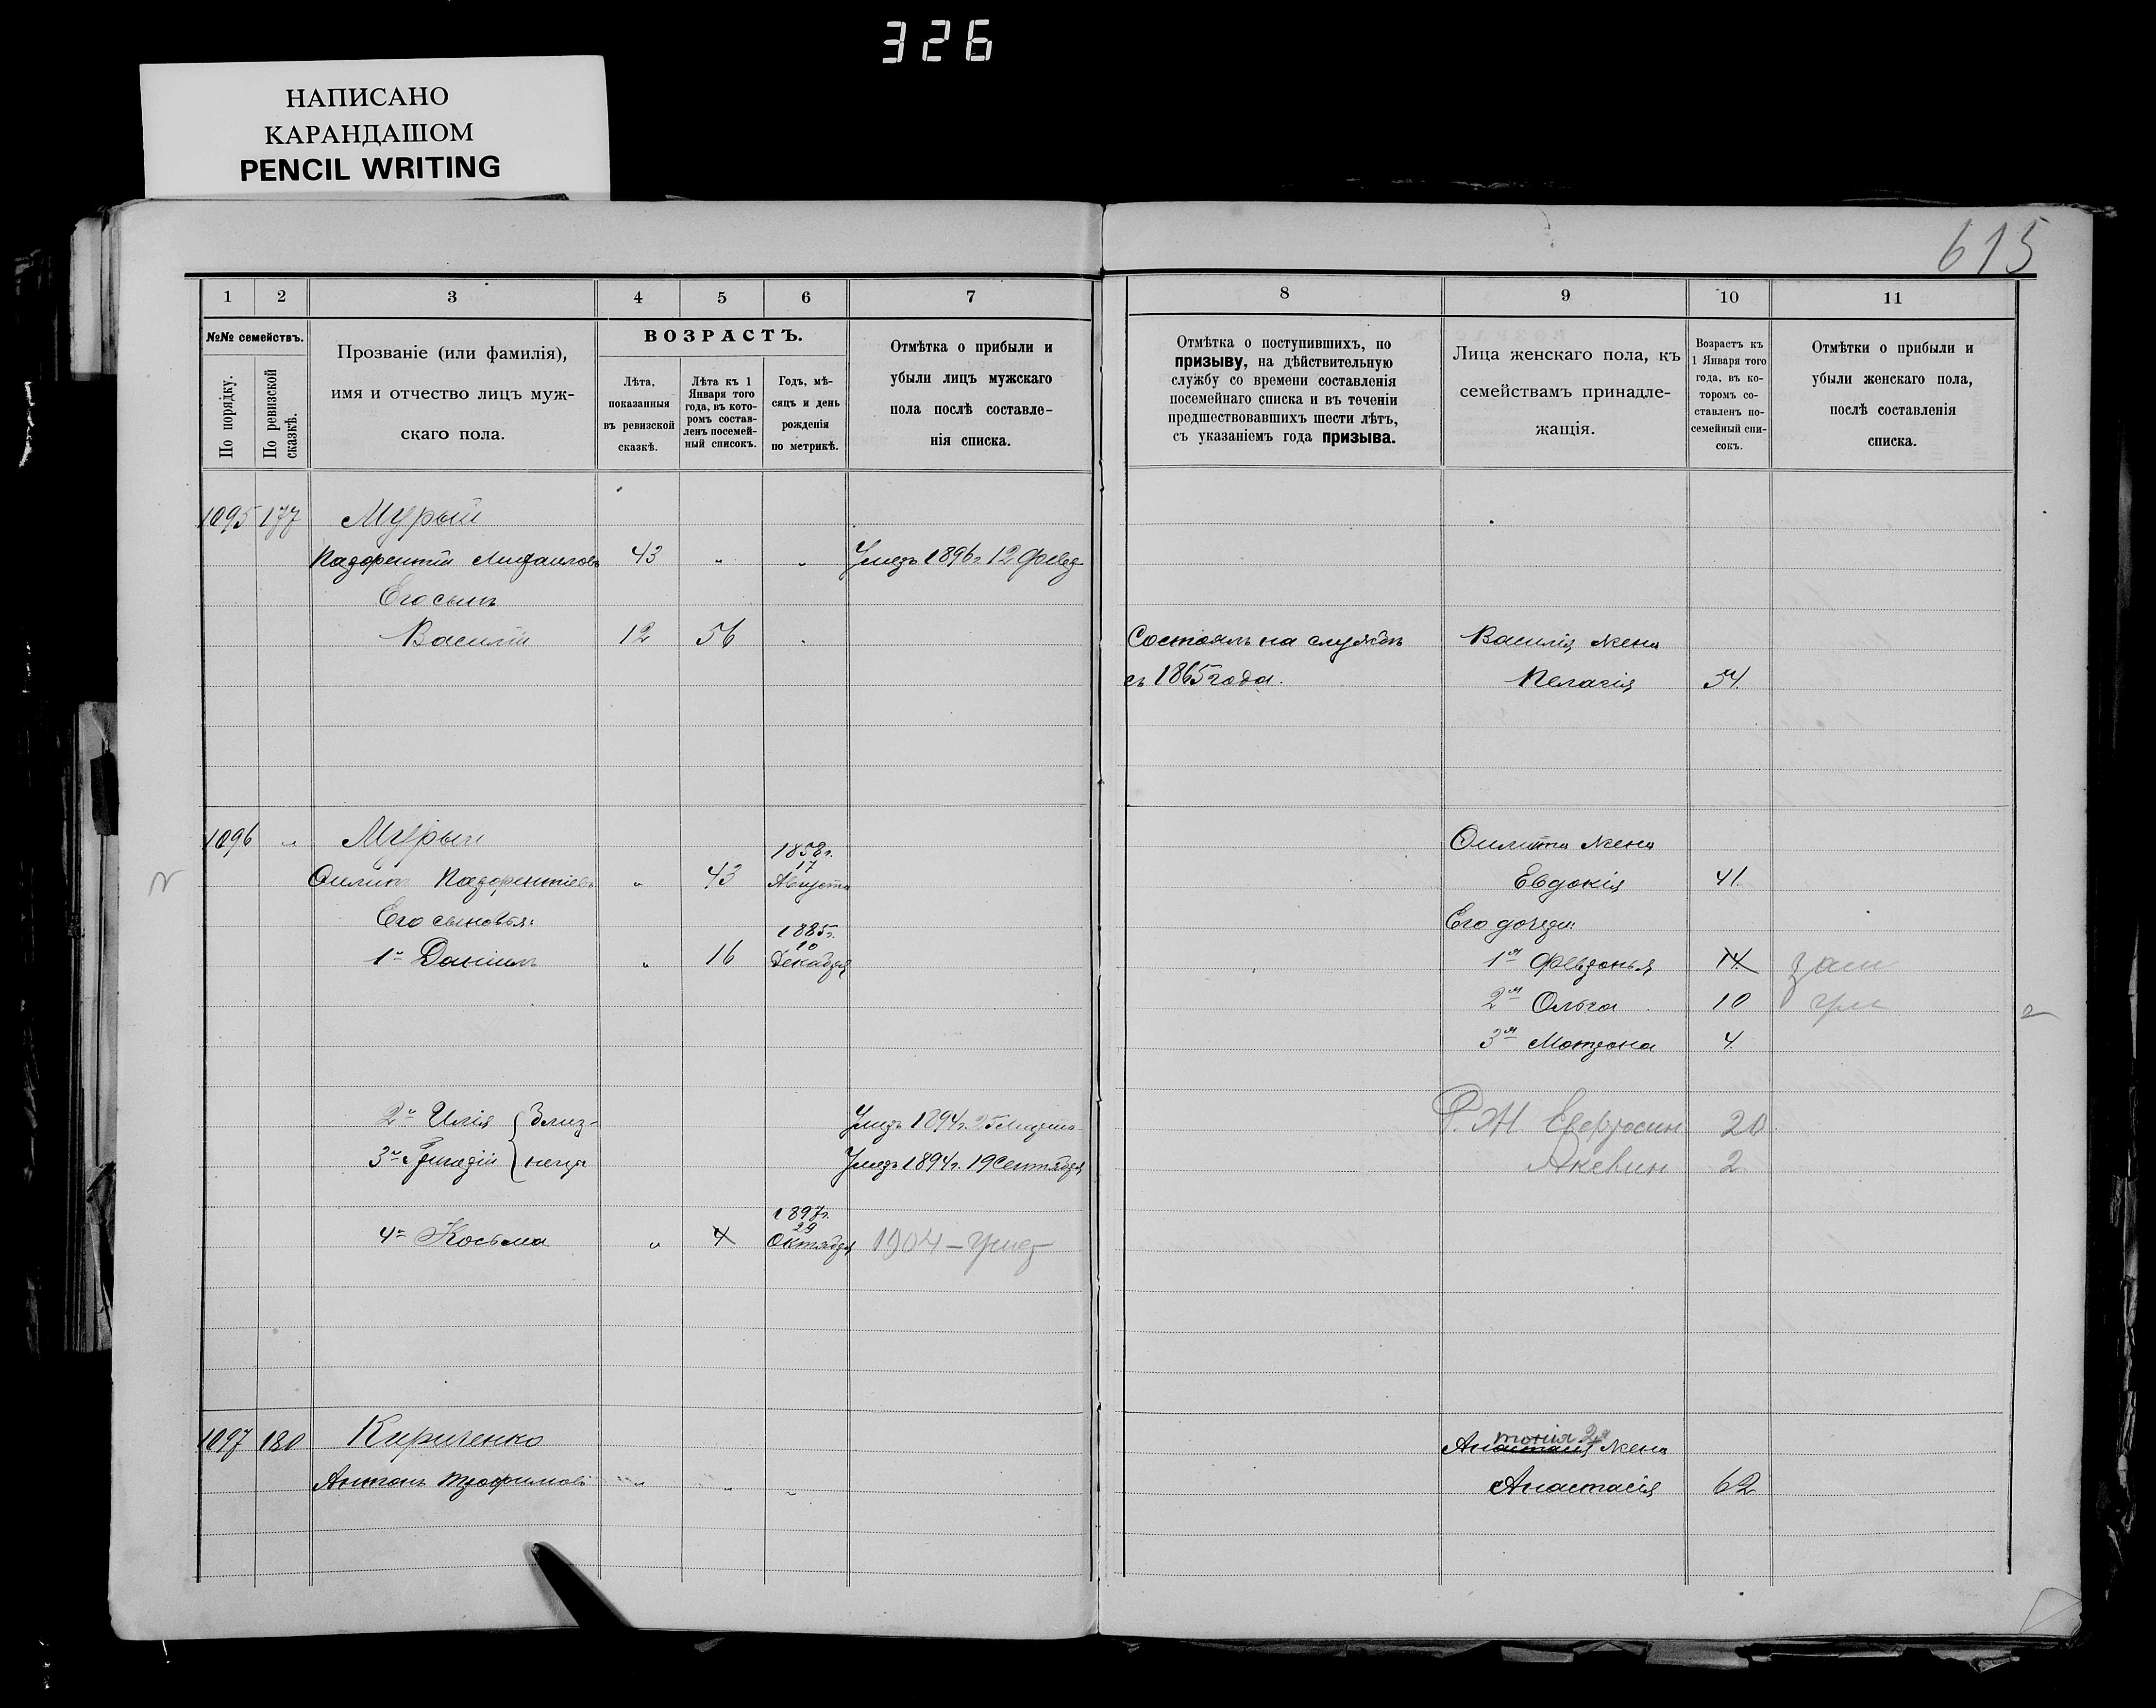 326
НАПИСАНО
КАРАНДАШОМ
PENCIL WRITING
615
1 2 3 4 5 6 7
№№ семействъ.
По порядку.
По ревизской сказкѣ.
Прозваніе (или фамилія),
имя и отчество лицъ муж-
скаго пола.
ВОЗРАСТЪ.
Лѣта,
показанныя
въ ревизской
сказкѣ.
Лѣта къ 1
Января того
года, въ кото-
ромъ состав-
ленъ посемей-
ный списокъ.
Годъ, мѣ-
сяцъ и день
рожденія
по метрикѣ.
Отмѣтка о прибыли и
убыли лицъ мужскаго
пола послѣ составле-
нія списка.
8 9 10 11
Отмѣтка о поступившихъ, по
призыву, на дѣйствительную
службу со времени составленія
посемейнаго списка и въ теченіи
предшествовавшихъ шести лѣтъ,
съ указаніемъ года призыва.
Лица женскаго пола, къ
семействамъ принадле-
жащія.
Возрастъ къ
1 Января того
года, въ ко-
торомъ со-
ставленъ по-
семейный спи-
сокъ.
Отмѣтки о прибыли и
убыли женскаго пола,
послѣ составленія
списка.
1095 177 Мурый
43 " " 1896 г 12
Его сынъ
Василій 12 56 "
Состоялъ на службѣ Василія жена
съ 1865 года. Пелагія 54
1096 " Мурый 1858 г.
17
" 43 Августа
Его сыновья: 1885 г.
10
1й Даніилъ " 16 Декабря
Филиппа жена
Евдокія 41
Его дочери:
1я 14
2я Ольга 10
3я Мотрона 4
2й Илія Близ- 1894 г. 25
3й нецы 1894 г. 19 Сентября
20
2
1897 г.
29
4й Косьма " 4 Октября 1904 –
1097 180 Кириченко
Антонъ Трофимовъ " " "
тонія 2я
Анастасія жена
Анастасія 62